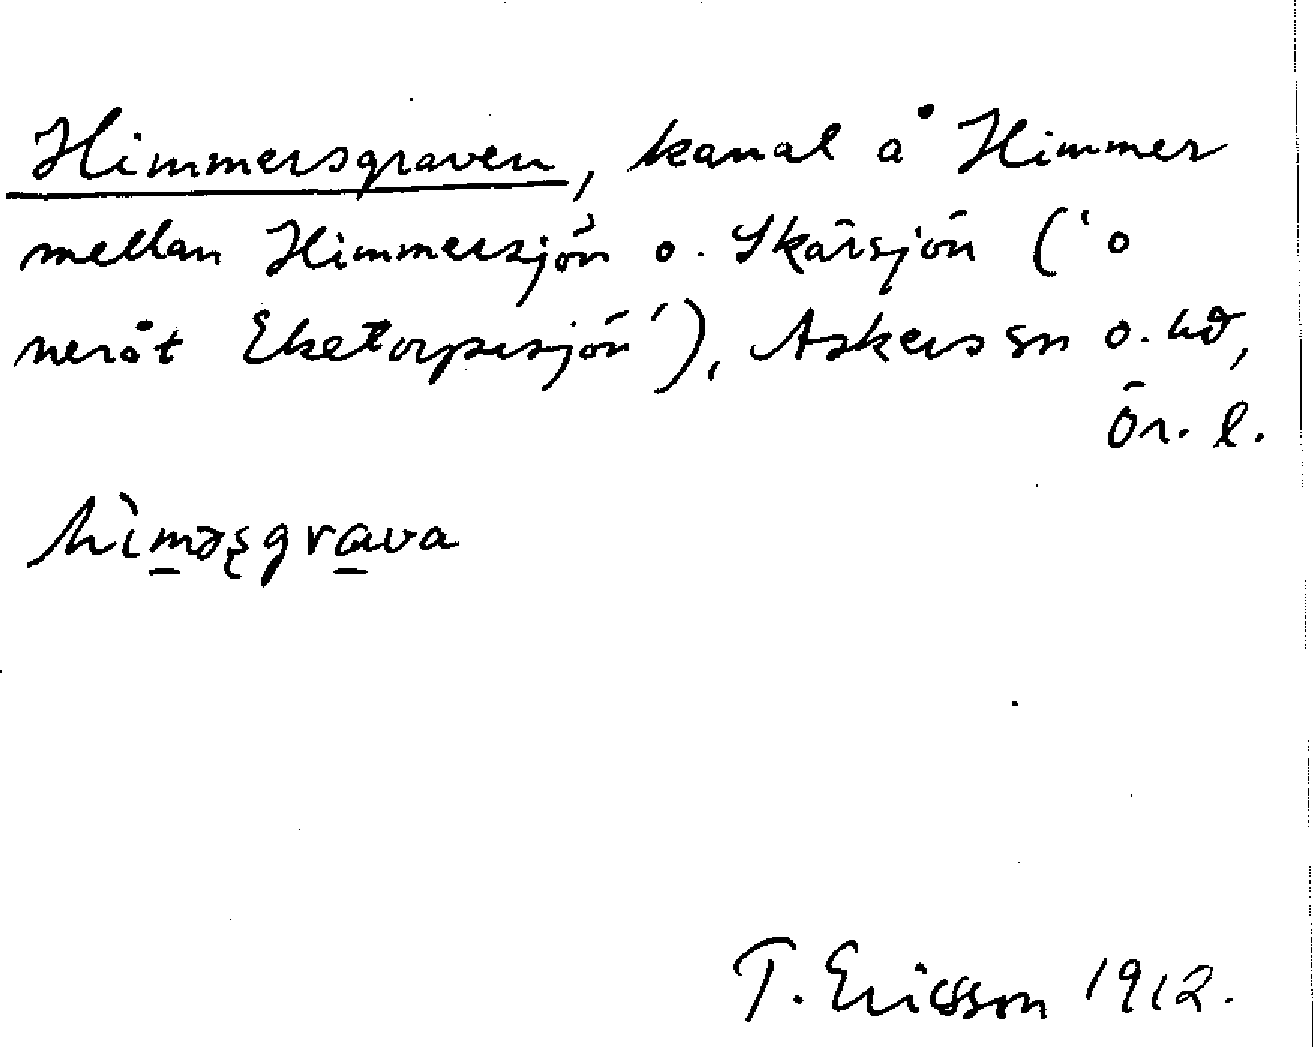 Himmersgraven, kanal å Himmer
mellan Himmersjön o. Skärsjön ('o
neråt Eketorpssjön'), Askers sn o. hd,
Ör. l.
hìmǝşgrava
T. Ericsson 1912.